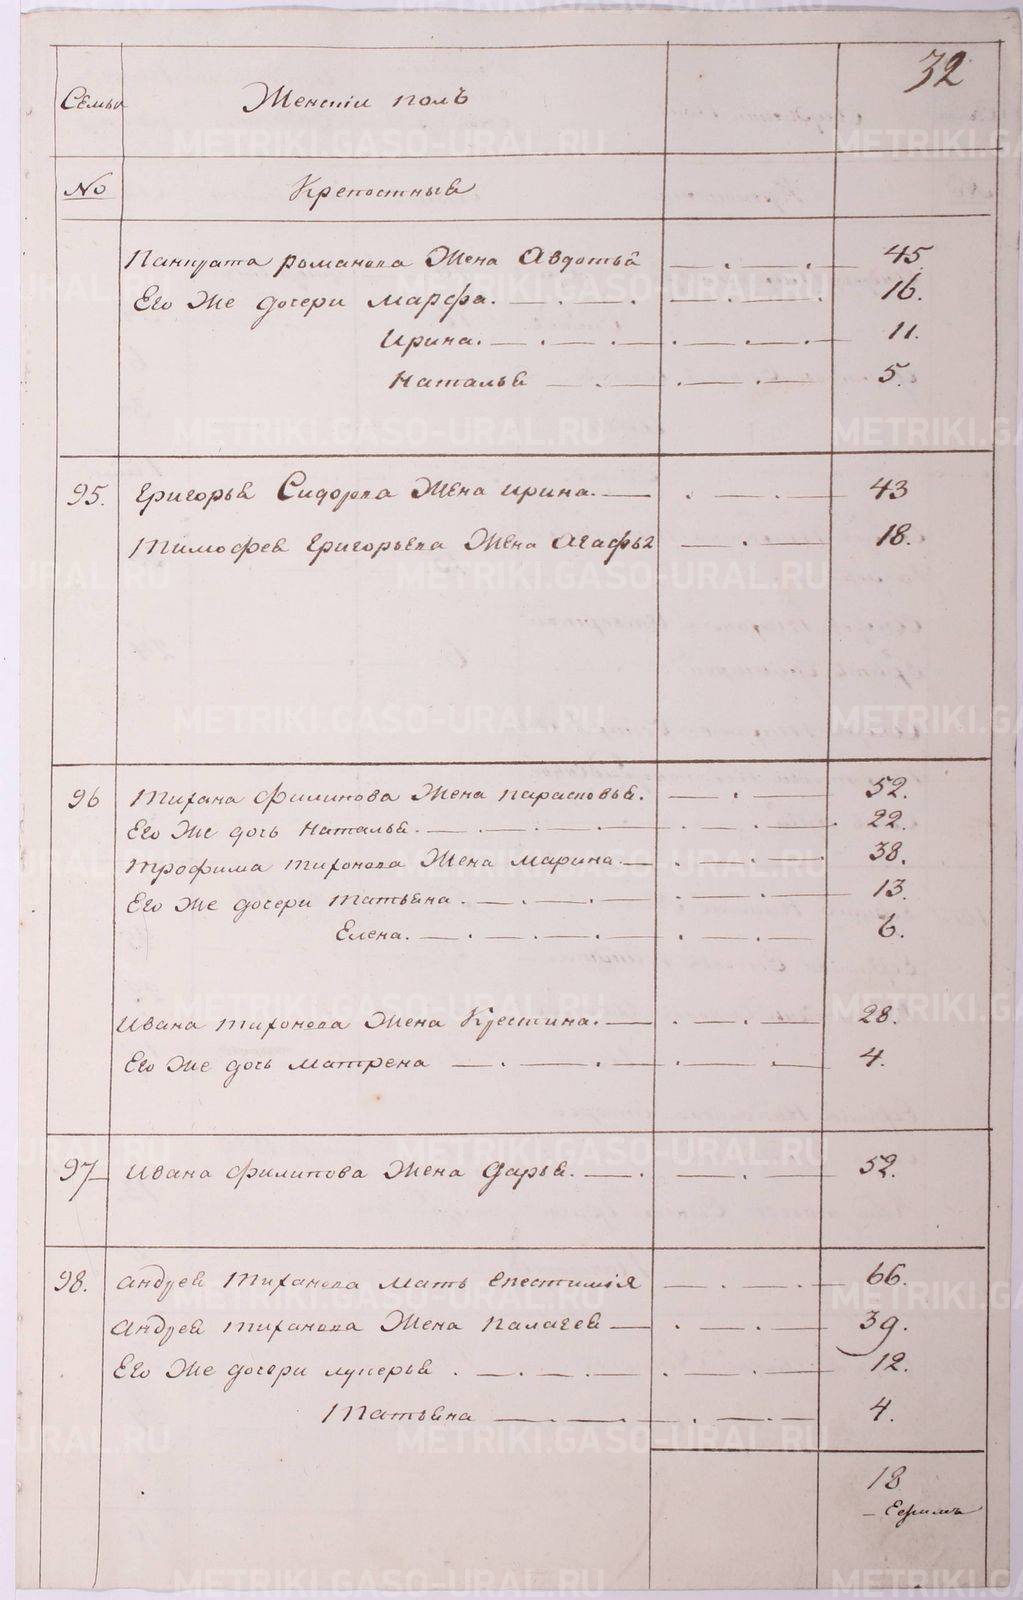 32
Семьи Женскiи полъ
No Крепостныѣ
Панкрата романова Жена Авдотьѣ 45
Его Же дочери Марфа. 16.
Ирина. 11.
Натальѣ 5.
95. Григорьѣ Сидорова Жена ирина. 43
Тимофея Григорьева Жена Агафьѣ 18.
96 Тихана Филипова Жена парасковьѣ. 52.
Его Же дочь Натальѣ. 22.
трофима тихонова Жена Марина. 38.
Его Же дочери татьѣна. 13.
Елена. 6.
Ивана тихонова Жена Крестина. 28.
Его Же дочь Матрена 4.
97 Ивана Филипова Жена Дарьѣ. 52.
98. андрея Тиханова Мать епестимiя 66.
Андрея тиханова Жена палагея 39.
Его Же дочери лукерьѣ. 12.
Татьѣна 4.
18
METRIKI.GASO-URAL.RU